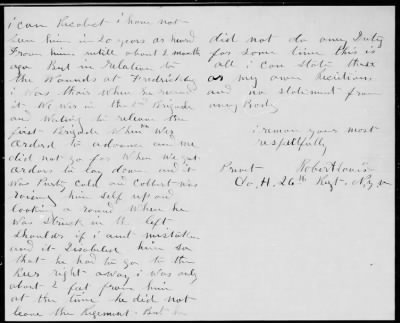 i can Recolect i have not
Seen him in 20 years or heard
From him untill about 2 month
ago But in Relation to
the Wounds at Fredricksburg
i was thair when he received
it We was in the 2nd Brigade
and Waiting to releave the
first Brigade When We Was
Orderd to advance and we
did not go far When We got
orders to lay down and it
was Purty Cold and Colbert was
raising him Self up and
looking a round When he
was Struck in the left
Shoulder if i aint mistaken
and it Disabled him so
that he had to go to the
Rear right away i was only
about 2 feet from him
at the time he did not
leave the Regiment But
did not do any Duty
for Some time this is
all i can State these
as my own
and no statement from
any Body
i remain yours most
respectfully
Privt Robert Louis
Co. H. 26th Regt. N.y.